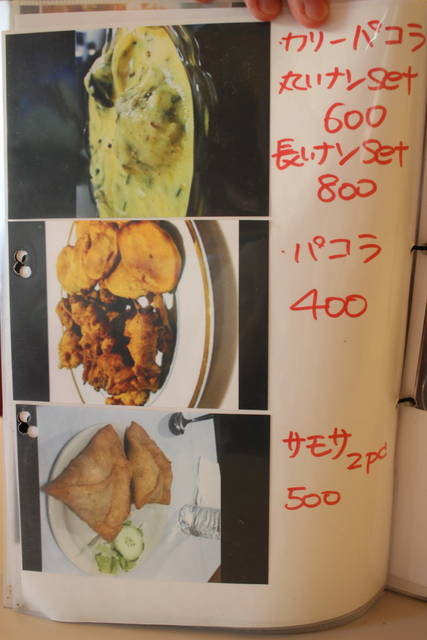 ・カリーパコラ
丸いナンset
600
長いナンset
800
・パコラ
400
サモサ2pc
500